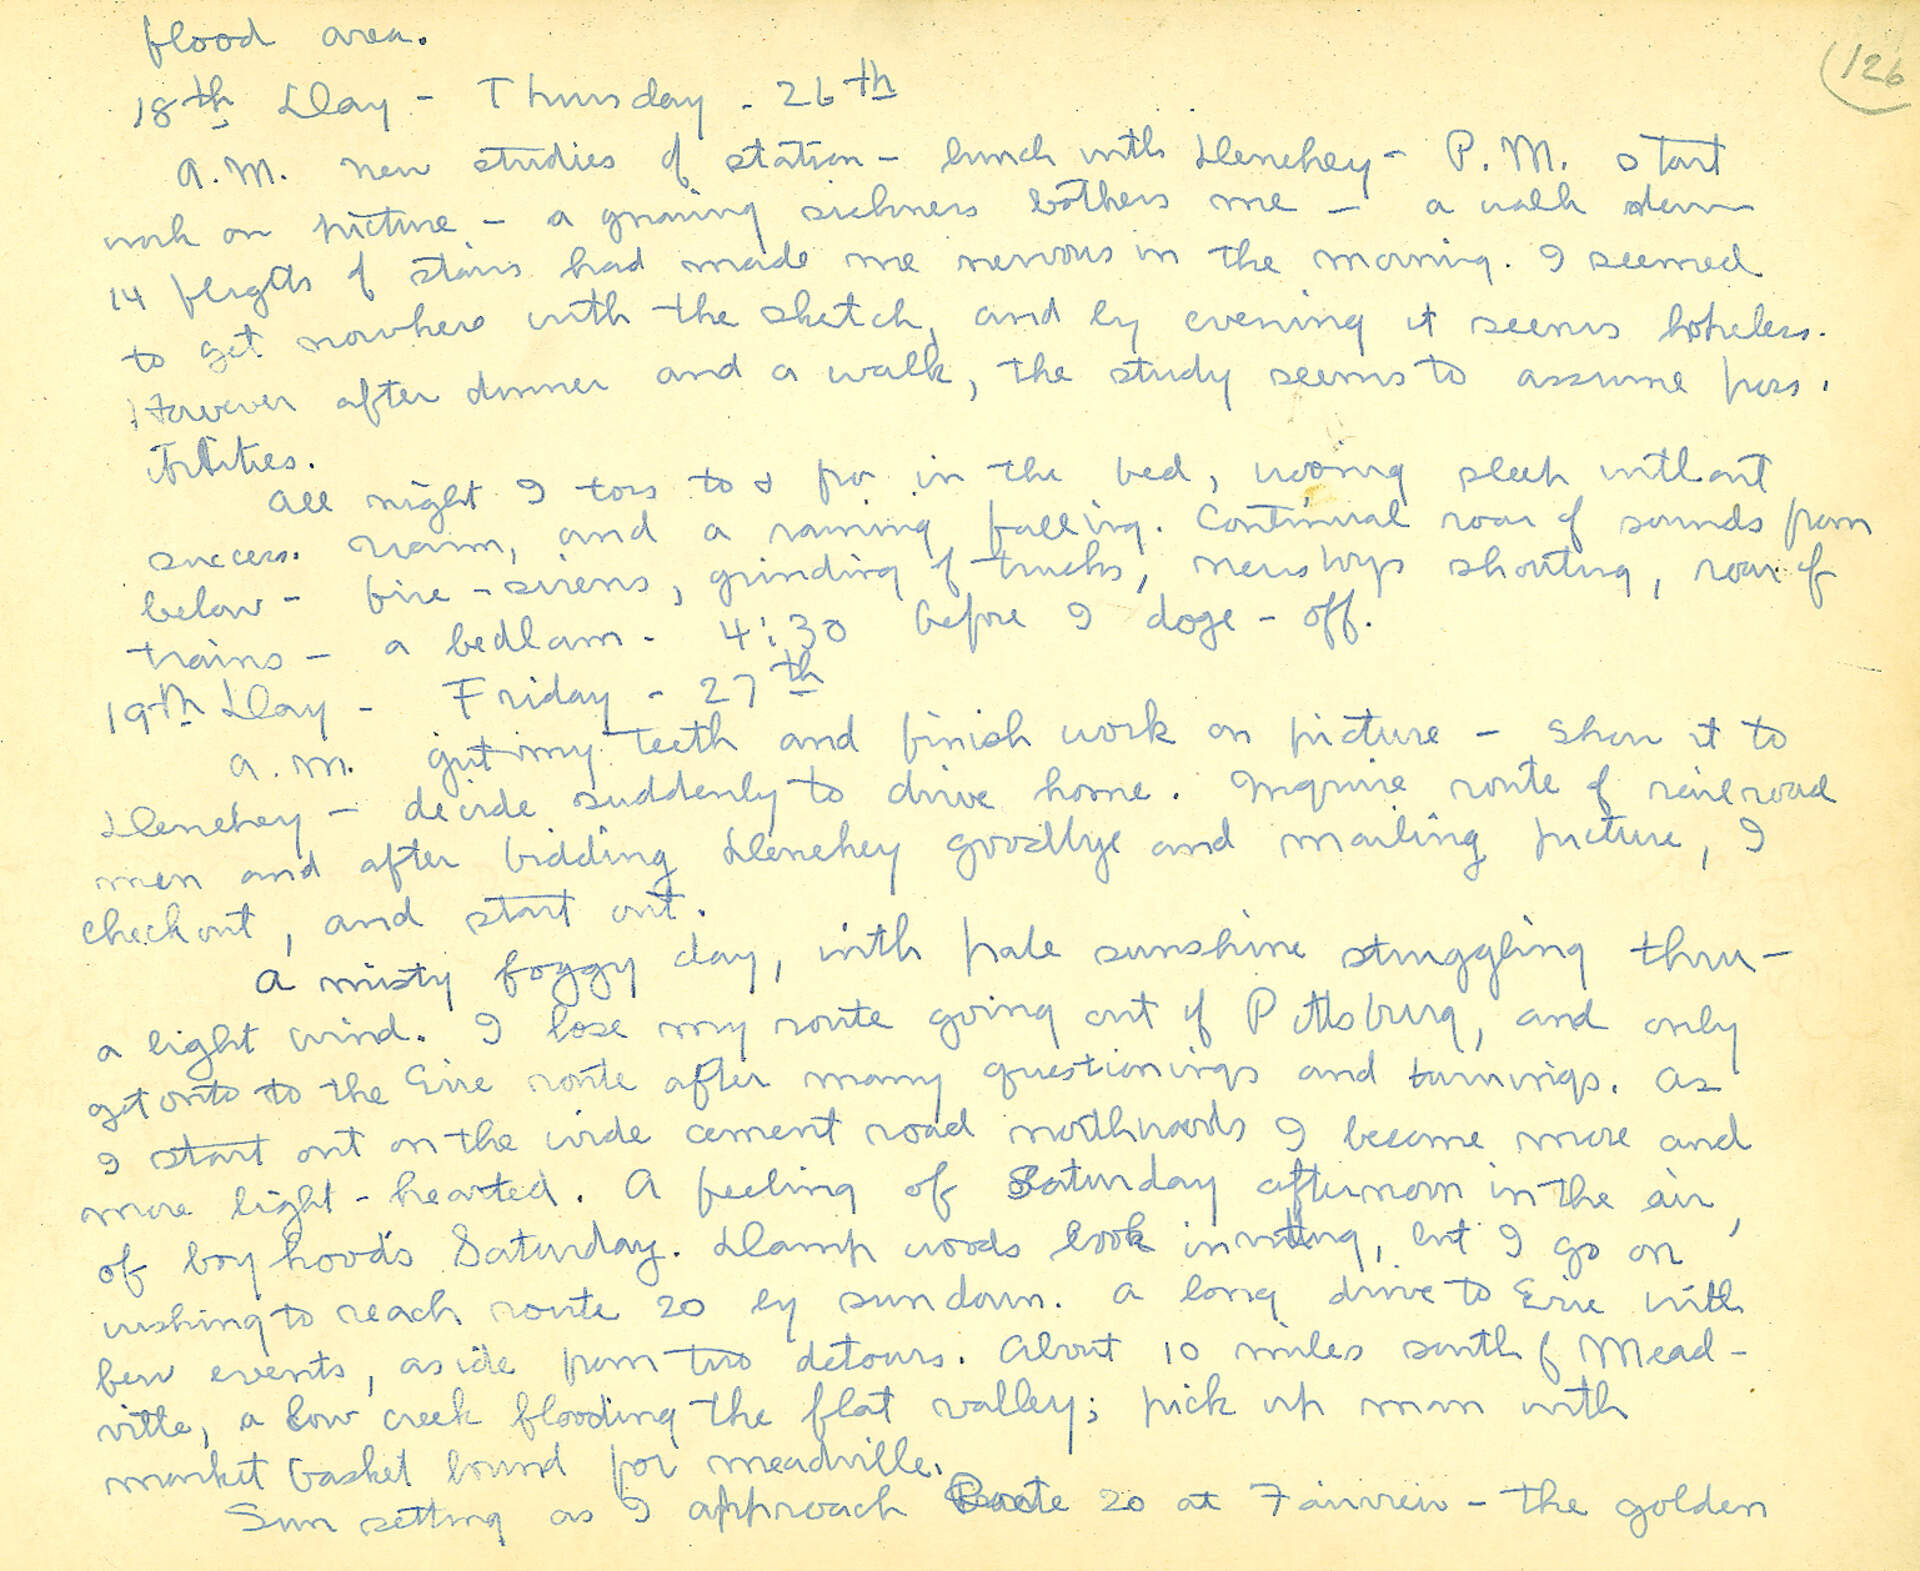 flood area.
(126
18th Day - Thursday - 26th
A.M. New studies of station - lunch with Denehey - P.M. start
work on picture - a gnawing sickness bothers me - a walk down
14 flights of stairs had made me nervous in the morning. I seemed
to get nowhere with the sketch, and by evening it seems hopeless.
However after dinner and a walk, the study seems to assume poss-
ibilities.
All night I toss to & fro in the bed, wooing sleep without
success. Warm, and a raining falling. Continual roar of sounds from
below - fire-sirens, grinding of trucks, newsboys shouting, roar of
trains - a bedlam - 4:30 before I doze-off.
19th Day - Friday - 27th
A.M. grit my teeth and finish work on picture - show it to
Denehey - decide suddenly to drive home. Inquire route of railroad
men and after bidding Denehey goodbye and mailing picture, I
check out, and start out.
A misty foggy day, with pale sunshine struggling thru -
a light wind. I lose my route going out of Pittsburg, and only
get onto to the Erie route after many questionings and turnings. As
I start out on the wide cement road northwards I become more and
more light-hearted. A feeling of Saturday afternoon in the air,
of boyhood's Saturday. Damp woods look inviting, but I go on
wishing to reach route 20 by sundown. A long drive to Erie with
few events, aside from two detours. About 10 miles south of Mead-
ville, a low creek flooding the flat valley; pick up man with
market basket bound for meadville.
Sun setting as I approach Route 20 at Fairview - the golden